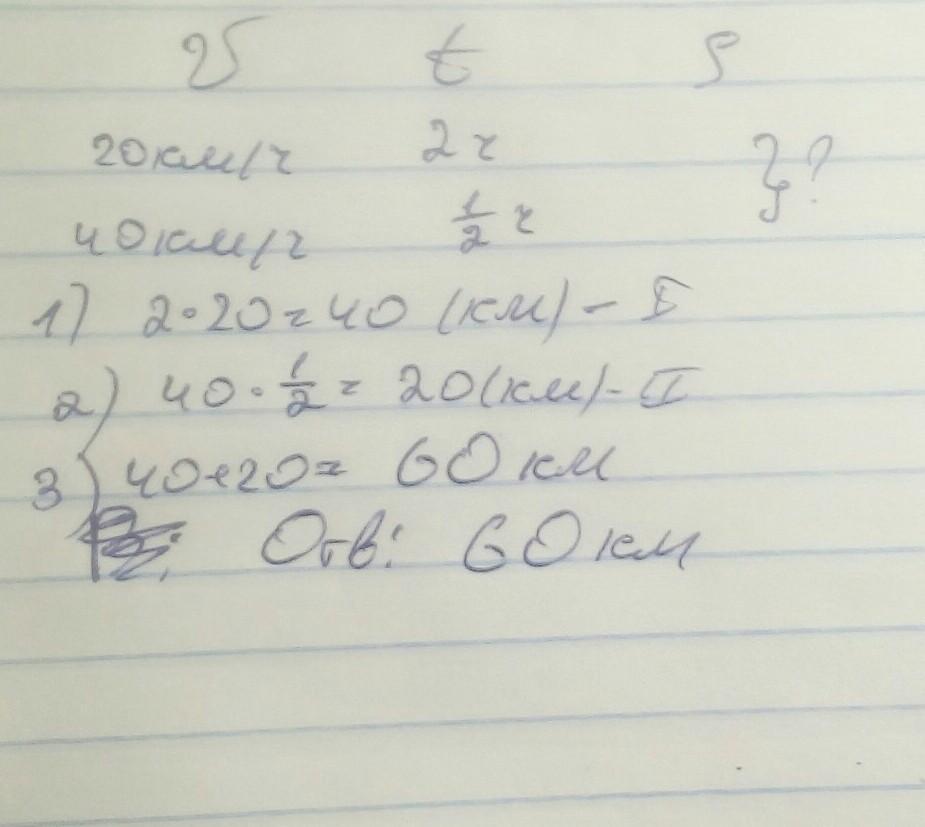 V t S
20 км/ч 2 ч } ?
40 км/ч 1/2 ч
1) 2·20=40 (км) – I
2) 40·1/2= 20(км)-II
3) 40+20= 60 км
Отв: 60 км